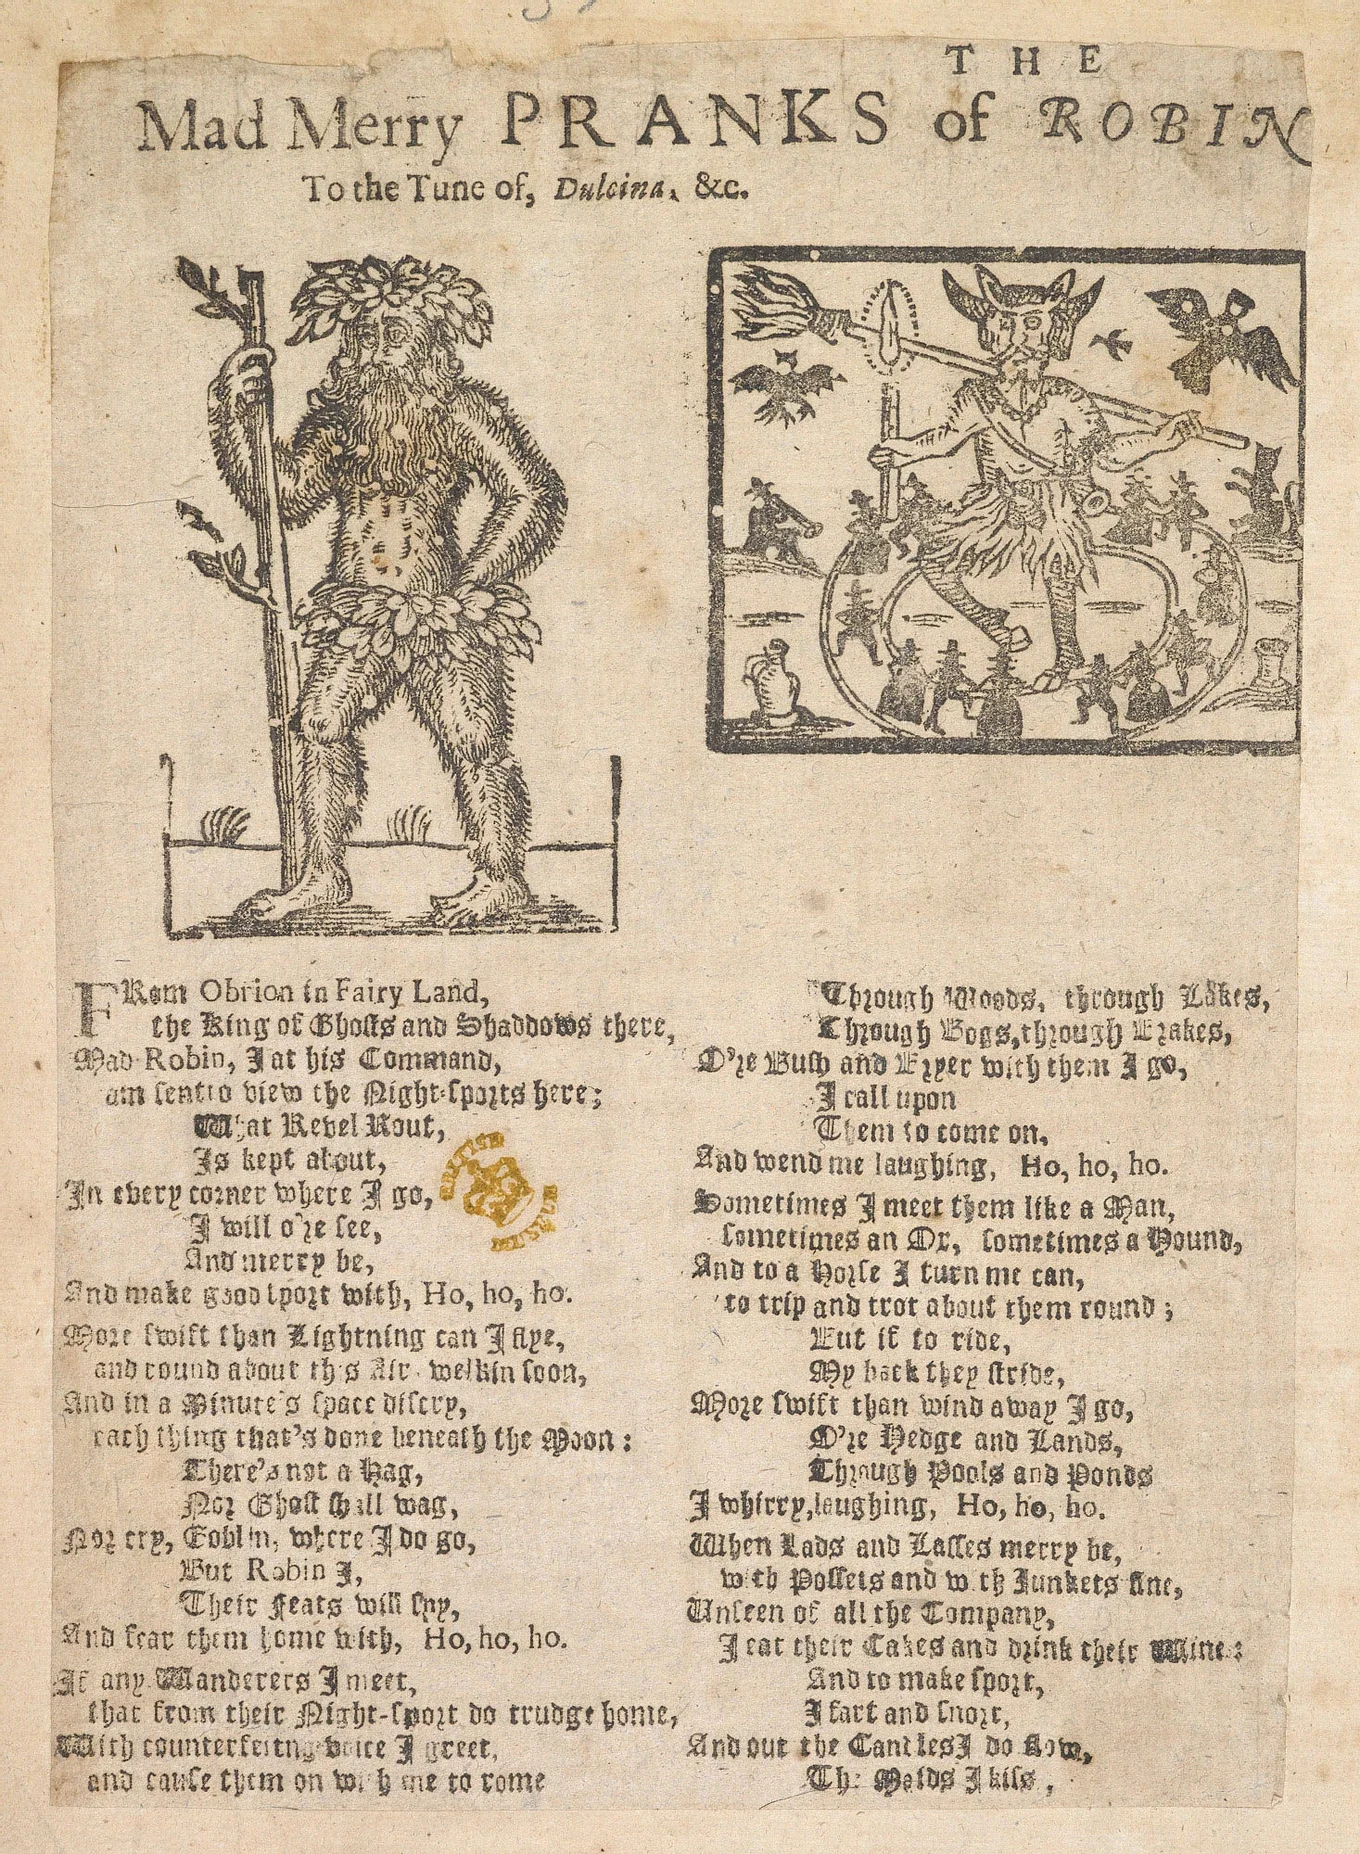 THE
Mad Merry PRANKS of ROBIN
To the Tune of, Dulcina, &c.
FRom Obrion in Fairy Land,
the King of Ghosts and Shaddows there,
Mad Robin, I at his Command,
am sent to view the Night-sports here;
What Revel Rout,
Is kept about,
In every corner where I go,
I will o're see,
And merry be,
And make good sport with, Ho, ho, ho.
More swift than Lightning can I flye,
and round about this Air welkin soon,
And in a Minute's space discry,
each thing that's done beneath the Moon:
There's not a Hag,
Nor Ghost shall wag,
Nor cry, Goblin, where I do go,
But Robin I,
Their Feats will spy,
And fear them home with, Ho, ho, ho.
If any Wanderers I meet,
that from their Night-sport do trudge home,
With counterfeiting voice I greet,
and cause them on with me to rome
Through Woods, through Lakes,
Through Bogs, through Brakes,
O're Bush and Bryer with them I go,
I call upon
Them to come on,
And wend me laughing, Ho, ho, ho.
Sometimes I meet them like a Man,
sometimes an Ox, sometimes a Hound,
And to a Horse I turn me can,
to trip and trot about them round;
But if to ride,
My back they stride,
More swift than wind away I go,
O're Hedge and Lands,
Through Pools and Ponds
I whirry, laughing, Ho, ho, ho.
When Lads and Lasses merry be,
with Possets and with Junkets fine,
Unseen of all the Company,
I eat their Cakes and drink their Wine:
And to make sport,
I fart and snort,
And out the Candles I do blow,
The Maids I kiss,
BRITISH
MUSEUM